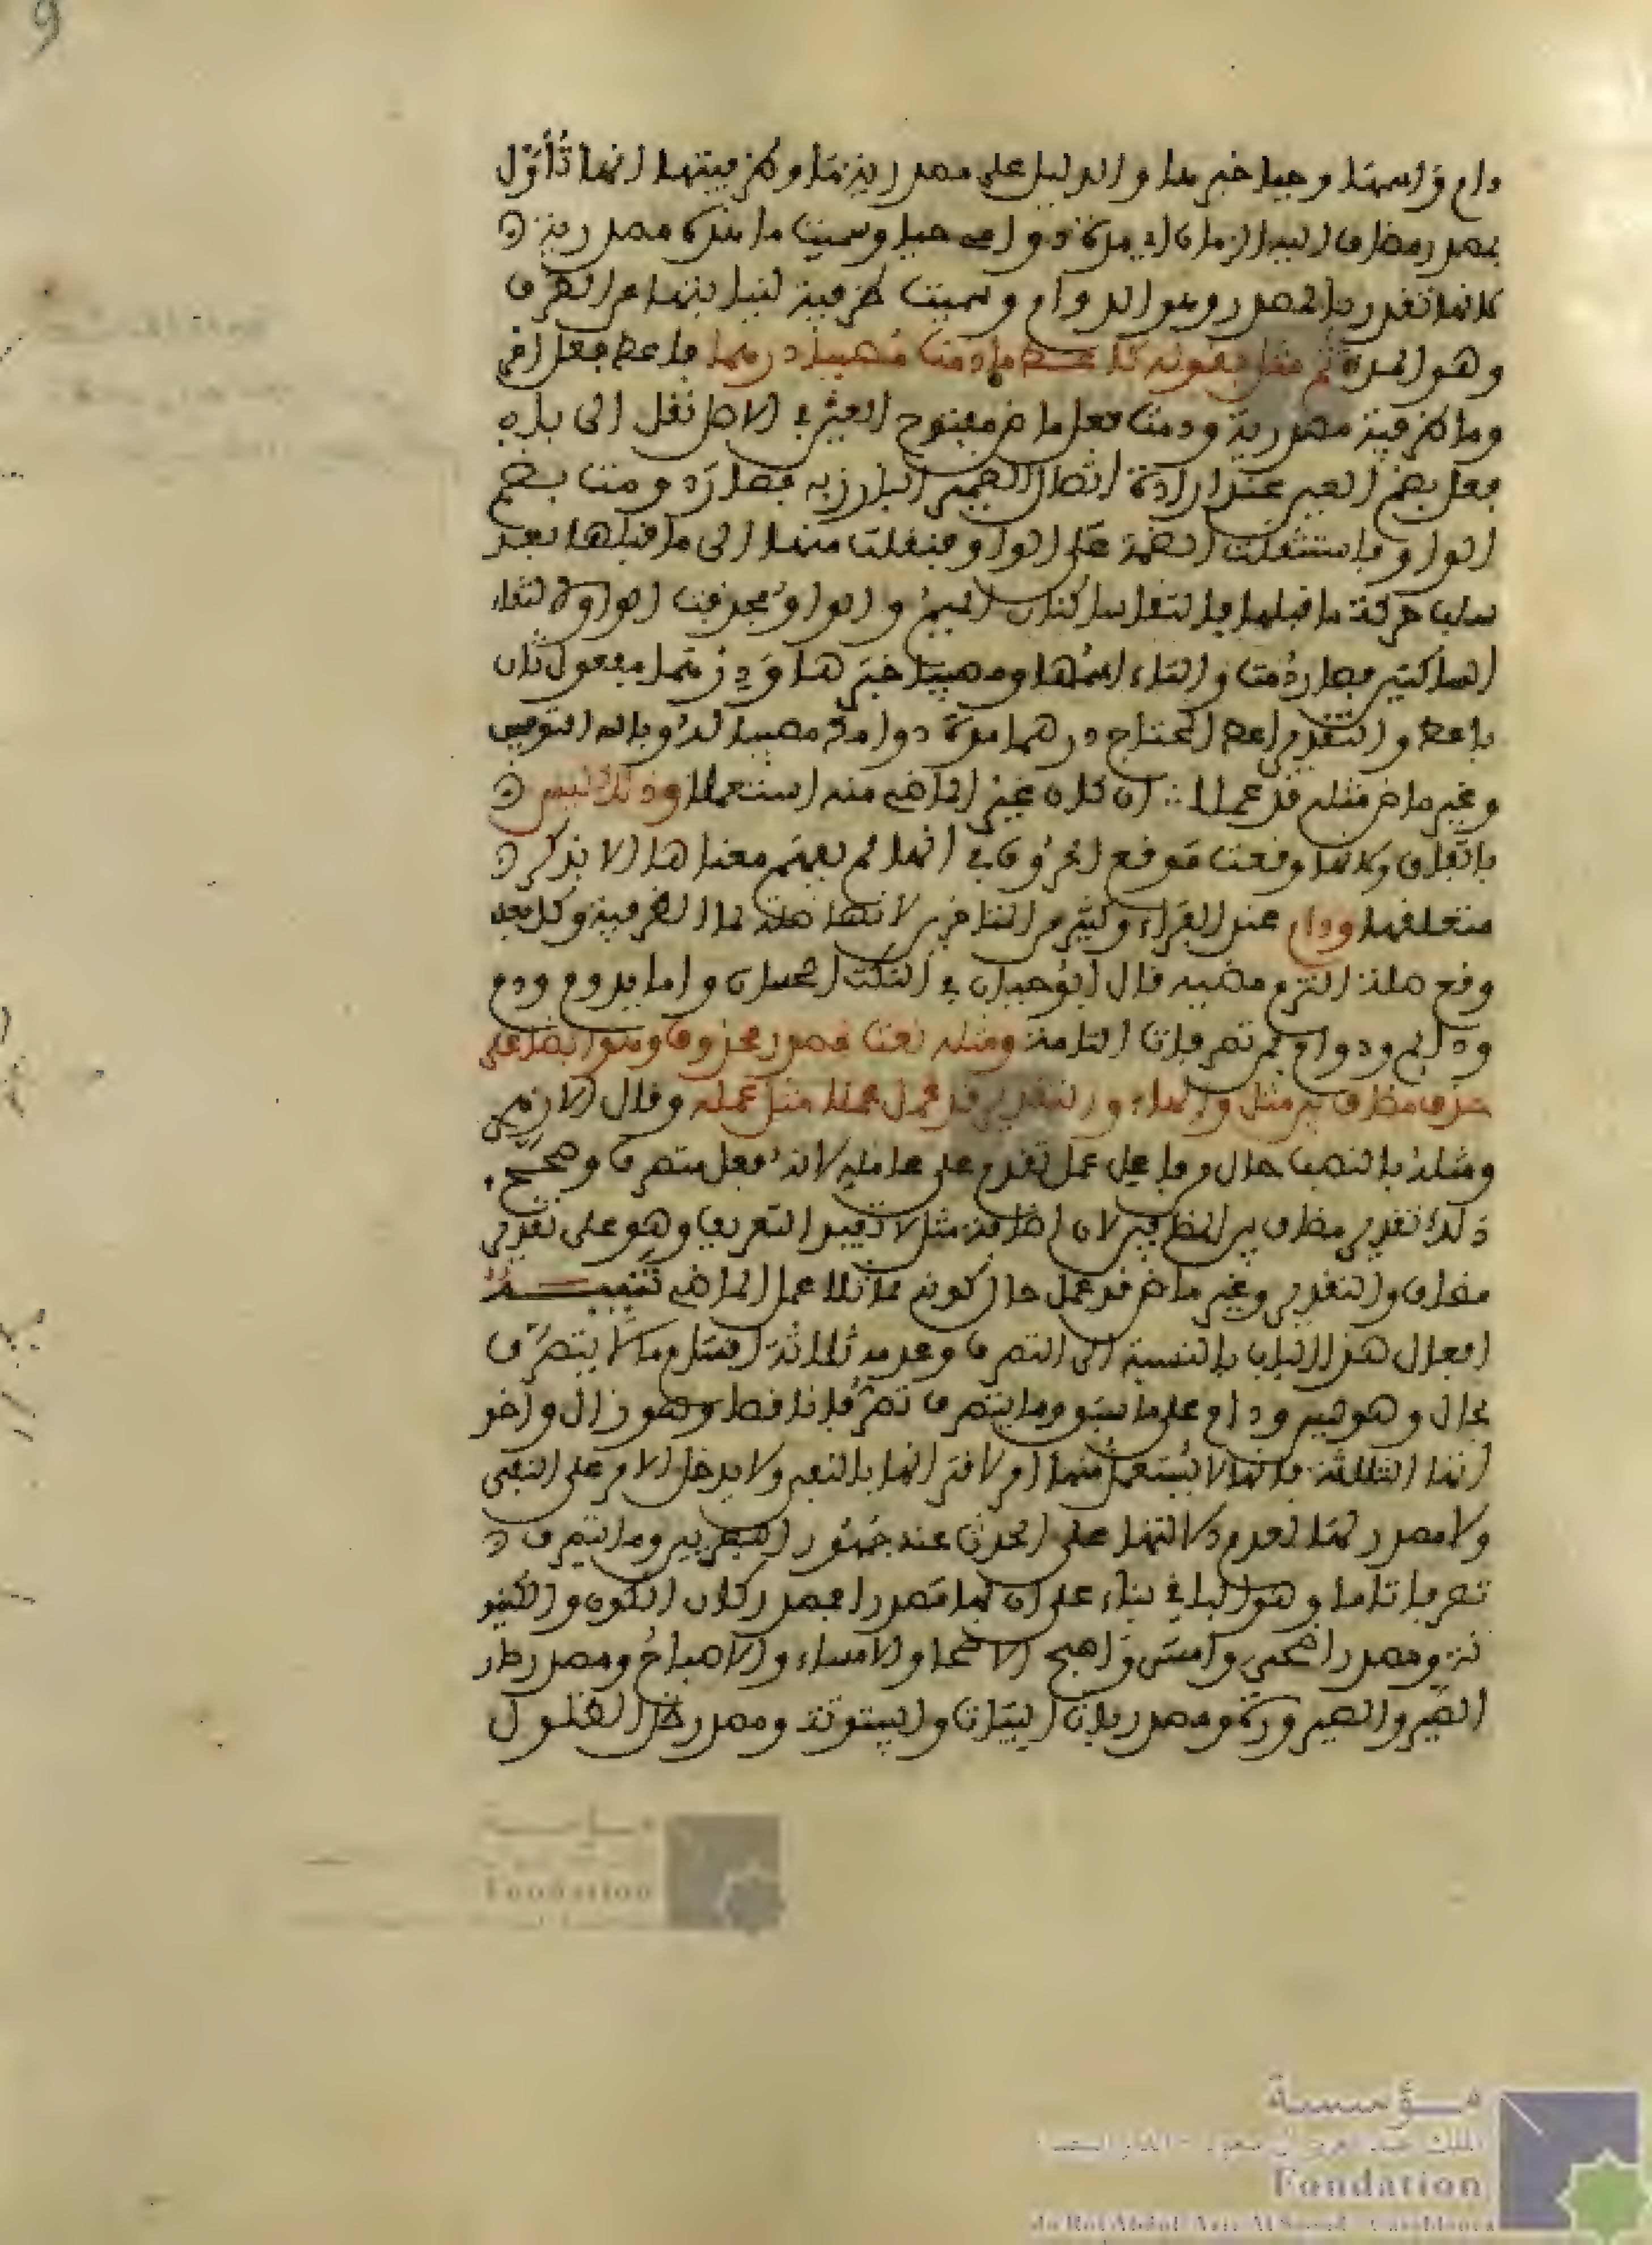 دام واسمها وحيا خبرها والدليل على مصدرية ما وظرفيتها انها تأول
بمصدر مضاف اليه الزمان اي مدة دوامي حيا وسميت ما هذه مصدرية
لانها تقدر بالمصدر وهو الدوام وسميت ظرفية لنيابتها عن الظرف
وهو المدة ثم مثل بقوله كاعط ما دمت مصيبا درهما فاعط فعل امر
وما ظرفية مصدرية ودمت فعل ماض مفتوح العين في الاصل نقل الى باب
فعل بضم العين عند ارادة اتصال الضمير البارز به فصار دومت بضم
الواو فاستثقلت الضمة على الواو فنقلت منها الى ما قبلها بعد
سلب حركة ما قبلها فالتقا ساكنان الميم والواو فحذفت الواو لالتقاء
الساكنين فصار دمت والتاء اسمها ومصيبا خبرها ودرهما مفعول ثان
باعط والتقدير اعط المحتاج درهما مدة دوامك مصيبا له وبالله التوفيق
وغير ماض مثله قد عملا ∴ ان كان غير الماض منه استعملا وذلك ليس
باتفاق وكانها وقعت موقع الحروف في انها لم يفهم معناها الا بذكر
متعلقها ودام عند الفراء وكثير من المتاخرين لانها صلة لما الظرفية وكل فعل
وقع صلة التزم مضيه قال ابو حيان في النكت الحسان واما يدوم ودم
ودايم ودوام فمن تصرفات التامة ومثله نعت مصدر محذوف وهو ايضا على
حذف مضاف بين مثل والهاء والتقدير قد عمل عملا مثل عمله وقال الازهري
ومثله بالنصب حال من فاعل عمل تقدم على عامله لانه فعل متصرف وصحح
ذلك تقدير مضاف بين المتضايفين لان اضافة مثل لا تفيد التعريف وهو على تقدير
مضاف والتقدير وغير ماض قد عمل حال كونه مماثلا عمل الماضي تنبيه
افعال هذا الباب بالنسبة الى التصرف وعدمه ثلاثة اقسام ما لا يتصرف
بحال وهو ليس ودام على ما سبق وما يتصرف تصرفا ناقصا وهو زال واخو
اتها الثلاثة فانها لا يستعمل منها امر لاقترانها بالنفي ولا يدخل الامر على النفي
ولا مصدر لها لعدم دلالتها على الحدث عند جمهور البصريين وما يتصرف
تصرفا تاما وهو الباقي بناء على ان لها مصدرا فمصدر كان الكون والكينو
نة ومصدر اضحى وامسى واصبح الاضحا والامساء والاصباح ومصدر صار
الصير والصيرورة ومصدر بات البيات والبيتوتة ومصدر ظل الظلول
مؤسسة
Fondation
Fondation
du Roi Abdul Aziz Al Saoud Casablanca